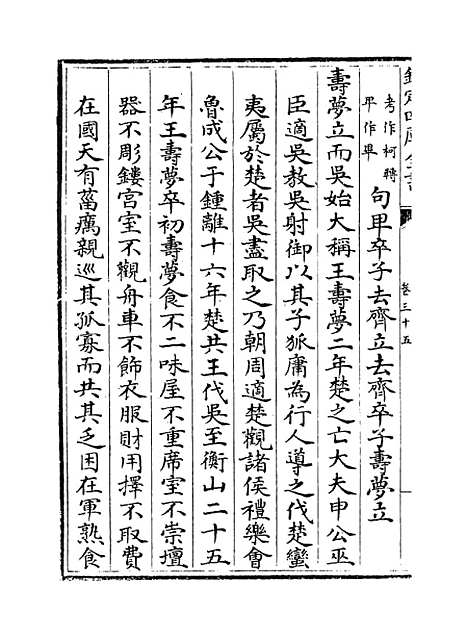 卷三十五
考作柯轉
平作畢
句卑卒子去齊立去齊卒子壽夢立
壽夢立而吳始大稱王壽夢二年楚之亡大夫申公巫
臣適吳教吳射御以其子狐庸為行人導之伐楚蠻
夷屬於楚者吳盡取之乃朝周適楚觀諸侯禮樂會
魯成公于鍾離十六年楚共王伐吳至衡山二十五
年王壽夢卒初壽夢食不二味屋不重席室不崇壇
器不彫鏤宫室不觀舟車不飾衣服財用擇不取費
在國天有菑癘親巡其孤寡而共其乏困在軍熟食